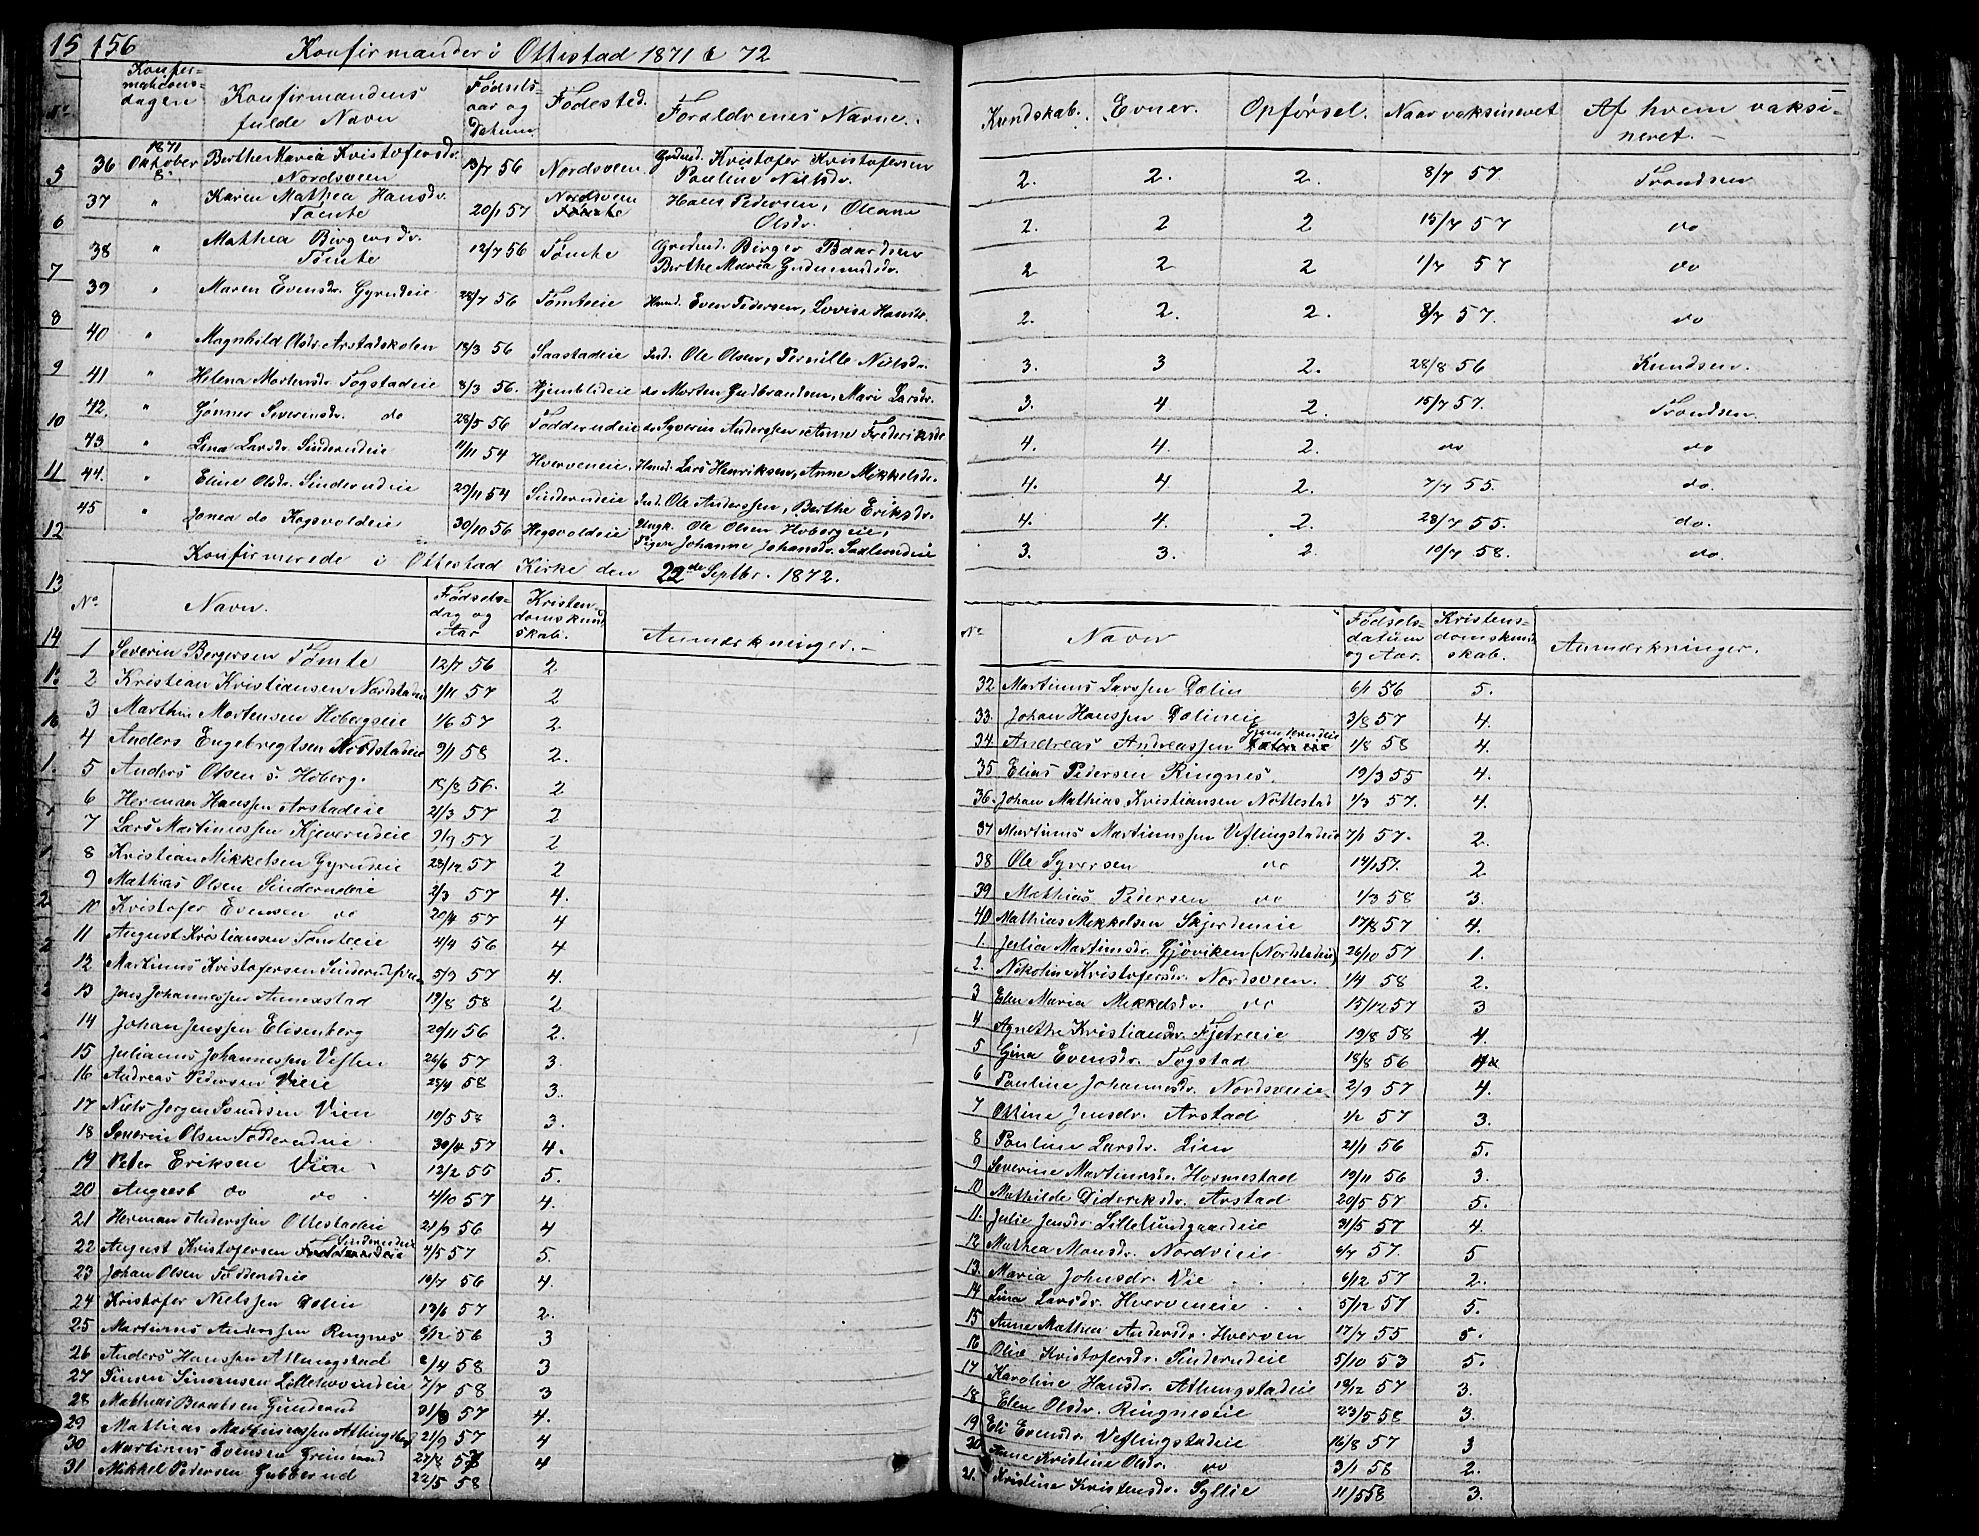 15 156
Konfirmander i Ottestad 1871 & 72
No. Konfirmationsdagen Konfirmandens fulde Navn Fødselsaar og Datum Fødested. Forældrenes Navne. Kundskab. Evner. Opførsel. Naar vaksineret Af hvem vaksineret.
36 1871 Oktober 8. Berthe Maria Kristofersdr. Nordsveen 13/7 56 Nordsveen Grdmd. Kristofer Kristofersen Pauline Nilsdr. 2. 2. 2. 8/7 57. Trondsen
37 " Karen Mathea Hansdr. Tømte 20/1 57 Nordsveen Hans Pedersen, Oleane Olsdr. 2. 2 2 15/7 57 do
38 " Mathea Birgersdr. Tømte 12/7 56 Tømte Grdmd. Birger Baardsen Berthe Maria Gudmundsdr. 2 2 2 1/7 57 do
39 " Maren Evensdr. Gyrudeie 28/7 56 Tømteeie Husmd. Even Pedersen, Lovise Hansdr. 2. 2. 2. 8/7 57. do
40 " Magnhild Olsdr. Arstadskolen 18/3 56 Saastadeie Ind. Ole Olsen, Pernille Nilsdr. 3. 3 2. 28/8 56 Knudsen.
41 " Helena Mortensdr. Fogstadeie 8/3 56. Hjemblideie do Morten Gudbrandsen, Mari Larsdr. 3. 4 2. 15/7 57. Trondsen.
42. " Gunner Severinsdr. do 28/5 56 Fodderudeie do Syverin Anderssen, Anne Frederiksdr. 4. 4. 2. do do
43 " Lina Larsdr. Sinderudeie 11/11 54 Hverveneie. Husmd. Lars Henriksen, Anne Mikkelsdr. 4. 4 2. 7/7 55. do.
44. " Eline Olsdr. Sinderudeie 29/11 54 Sinderudeie Ind. Ole Anderssen, Berthe Eriksdr. 4. 4. 2. 28/7 55. do.
45 " Jonea do Hegsvoldeie 30/10 56 Hegsvoldeie Ungk. Ole Olsen Hobergeie, Pigen Johanne Johansdr. 3. 3. 2. 10/7 58. do
Konfirmerede i Ottestad Kirke den 22de Septbr. 1872.
No. Navn. Fødselsdag og Aar Kristendomskundskab. Anmærkninger.
1 Severin Bergersen Tømte 12/7 56 2
2 Kristian Kristiansen Nordstadeie 1/11 57 2
3 Marthin Mortensen Hobergseie 1/6 57 2.
4 Anders Engebregtsen Nordstadeie 9/11 58 2.
5 Anders Olsen s. Hoberg. 18/8 56. 2
6 Herman Hanssen Arstadeie 21/3 57 2
7 Lars Martinussen Kjeverudeie 9/9 57 2
8 Kristian Mikkelsen Gyrudeie 28/12 57 2
9 Mathias Olsen Sinderudeie 2/3 57 4.
10 Kristofer Evensen do 20/4 57 4
11 August Kristiansen Tomteeie 4/4 56 4
12 Martinus Kristofersen 5/9 57 4.
13 Jens Johannessen Annexstad 19/8 58 2
14 Johan Jenssen Elisenberg 20/11 56 2.
15 Julianus Johannessen Veflen 26/6 57 3.
16 Andreas Pedersen Vieie 28/4 58 3.
17 Niels Jørgen Svendsen Vien 10/5 58 3.
18 Severin Olsen Fodderudeie 30/4 57 4.
19 Peter Eriksen Vien 12/2 55 5.
20 August do do 4/10 57 4.
21 Herman Anderssen Ottestadeie 21/9 56 4
22 August Kristofersen Sinderudeie 4/5 57 5.
23 Johan Olsen Fodderudeie 10/7 56 4.
24 Kristofer Nielssen Dælin 13/6 57 2.
25 Martinus Anderssen Ringnes 6/12 56 3
26 Anders Hanssen Atlungstad 2/4 58 3
27 Simen Simensen Lillehovindeie 7/7 58 3
28 Mathias Berntsen Gunderud 21/8 57 4.
29 Mathias Martinussen Atlungstad 21/9 57 4
30 Martinus Evensen Grimerud 27/8 57 4
31 Mikkel Pedersen Gubberud 22/5 58
No Navn Fødselsdatum og Aar. Kristensdomskundskab. Anmærkninger.
32 Martinus Larssen Dælin 6/1 56 5.
33. Johan Hanssen Dælineie 3/8 57 4.
34. Andreas Andreassen Gunderudeie 1/8 58 4.
35 Elias Pedersen Ringnes. 19/3 55 4.
36. Johan Mathias Kristiansen Nøttestad 1/3 57. 4.
37 Martinus Martinussen Veflingstadeie 7/1 57. 2.
38 Ole Syversen do 14/1 57. 2
39 Mathias Pedersen do 1/3 58 3.
40 Mathias Mikkelsen Skjerdeneie 17/8 57 4.
1. Julia Martinsdr. Gjøviken (Nordstadeie) 26/10 57 1.
2. Nikoline Kristofersdr. Nordsveen. 1/4 58 2.
3 Elen Maria Mikkelsdr. do 15/12 57 3
4 Agnethe Kristiansdr. Fjetreeie 19/8 58 4.
5 Gina Evensdr. Fogstad 18/8 56 4.
6 Pauline Johannesdr. Nordsveeie 2/9 57 4.
7 Ottine Jensdr. Arstad 1/2 57 3.
8 Pauline Larsdr. Lien 21/1 56 5.
9 Severine Martinusdr. Hosmestad 19/11 56 3.
10 Mathilde Dideriksdr. Arstad 20/5 57 5.
11. Julie Jensdr. Lillelundgaardeie 31/5 57 4.
12 Mathea Monsdr. Nordvieie 6/7 57. 5
13. Maria Johnsdr. Vie 6/12 57 2.
14 Lina Larsdr. Hverveneie 5/12 57 5.
15 Anne Mathea Andersdr. Hverven 17/7 55 5.
16 Olive Kristofersdr. Sinderudeie 5/10 53 5.
17 Karoline Hansdr. Atlungstadeie 18/12 57 3.
18 Elen Olsdr. Ringneseie 23/5 58 3.
19 Eli Evensdr. Veflingstadeie 16/8 57 3
20 Anne Kristine Olsdr. do 3/1 58 2.
21. Kristine Kristensdr. Syllie 11/5 58 3.